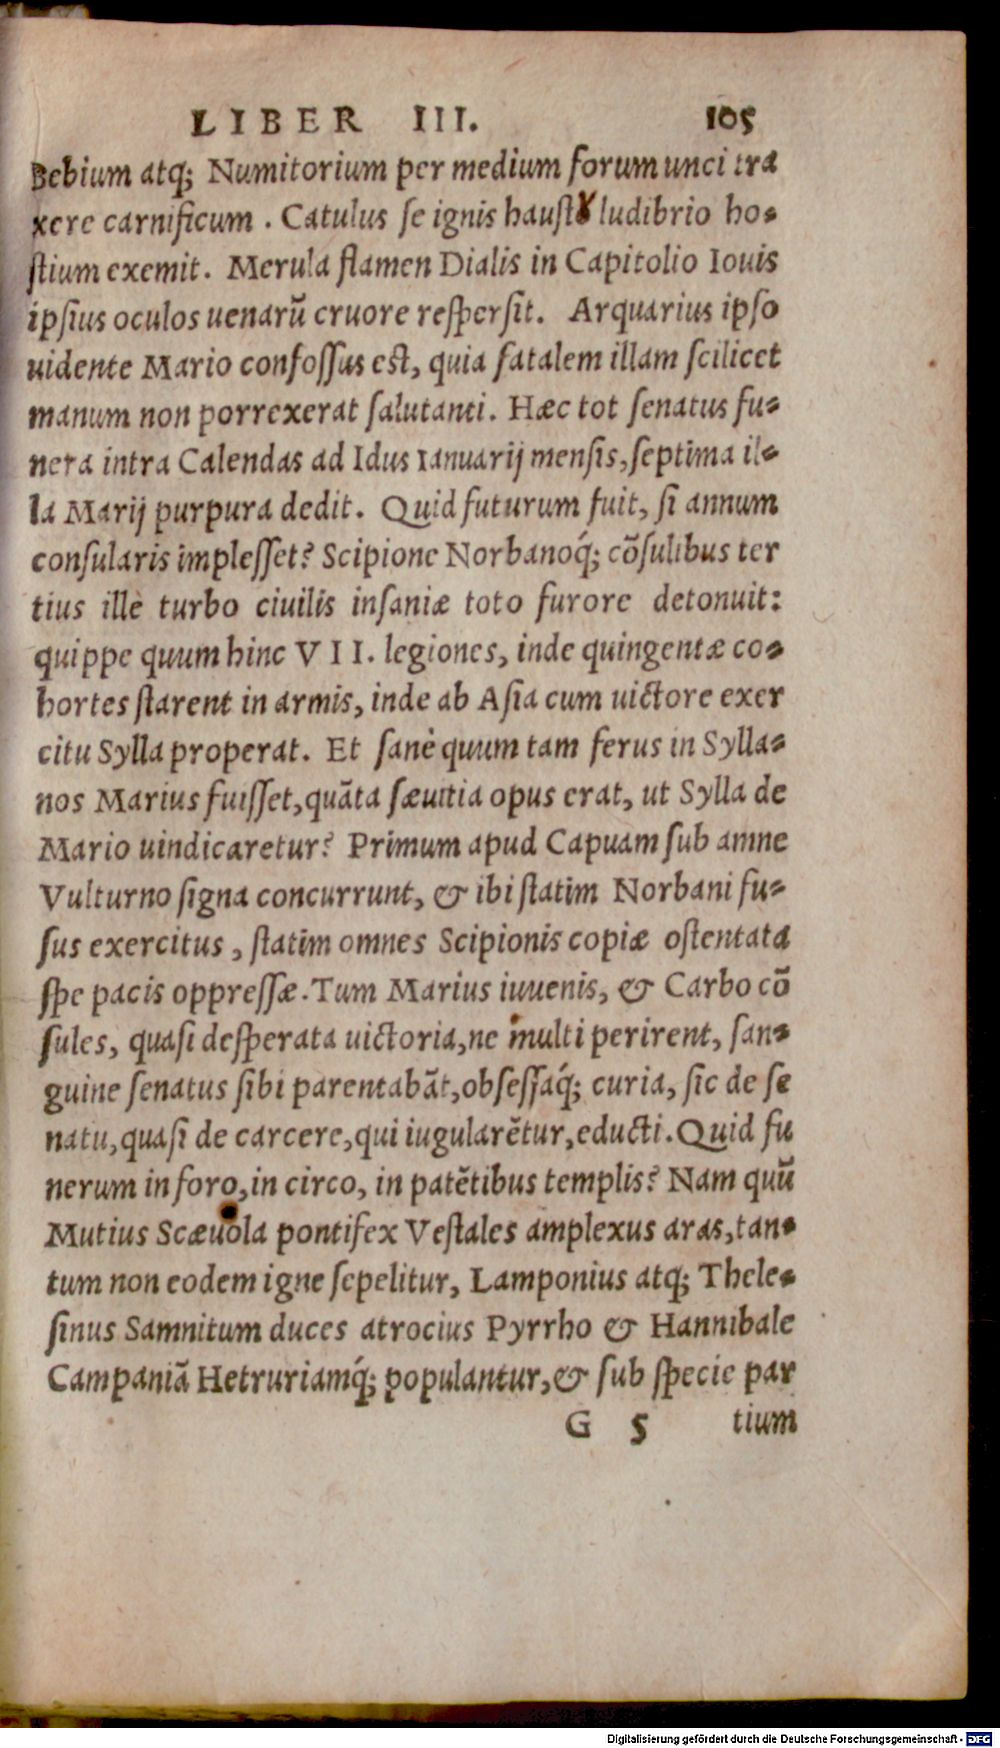 LIBER III. 105
Bebium atq; Numitorium per medium forum unci tra
xere carnificum . Catulus se ignis haustu ludibrio ho-
stium exemit. Merula flamen Dialis in Capitolio Iouis
ipsius oculos uenarū cruore respersit. Arquarius ipso
uidente Mario confossus est, quia fatalem illam scilicet
manum non porrexerat salutanti. Hæc tot senatus fu-
nera intra Calendas ad Idus Ianuarij mensis, septima il-
la Marij purpura dedit. Quid futurum fuit, si annum
consularis implesset? Scipione Norbanoq́; cōsulibus ter
tius ille turbo ciuilis insaniæ toto furore detonuit:
quippe quum hinc VII. legiones, inde quingentæ co-
hortes starent in armis, inde ab Asia cum uictore exer
citu Sylla properat. Et sanè quum tam ferus in Sylla-
nos Marius fuisset, quāta sæuitia opus erat, ut Sylla de
Mario uindicaretur? Primum apud Capuam sub amne
Vulturno signa concurrunt, & ibi statim Norbani fu-
sus exercitus , statim omnes Scipionis copiæ ostentata
spe pacis oppressæ. Tum Marius iuuenis, & Carbo cō
sules, quasi desperata uictoria, ne multi perirent, san-
guine senatus sibi parentabāt, obsessaq́; curia, sic de se
natu, quasi de carcere, qui iugularētur, educti. Quid fu
nerum in foro, in circo, in patētibus templis? Nam quū
Mutius Scæuola pontifex Vestales amplexus aras, tan-
tum non eodem igne sepelitur, Lamponius atq; Thele-
sinus Samnitum duces atrocius Pyrrho & Hannibale
Campaniā Hetruriamq́; populantur, & sub specie par
G 5 tium
Digitalisierung gefördert durch die Deutsche Forschungsgemeinschaft - DFG